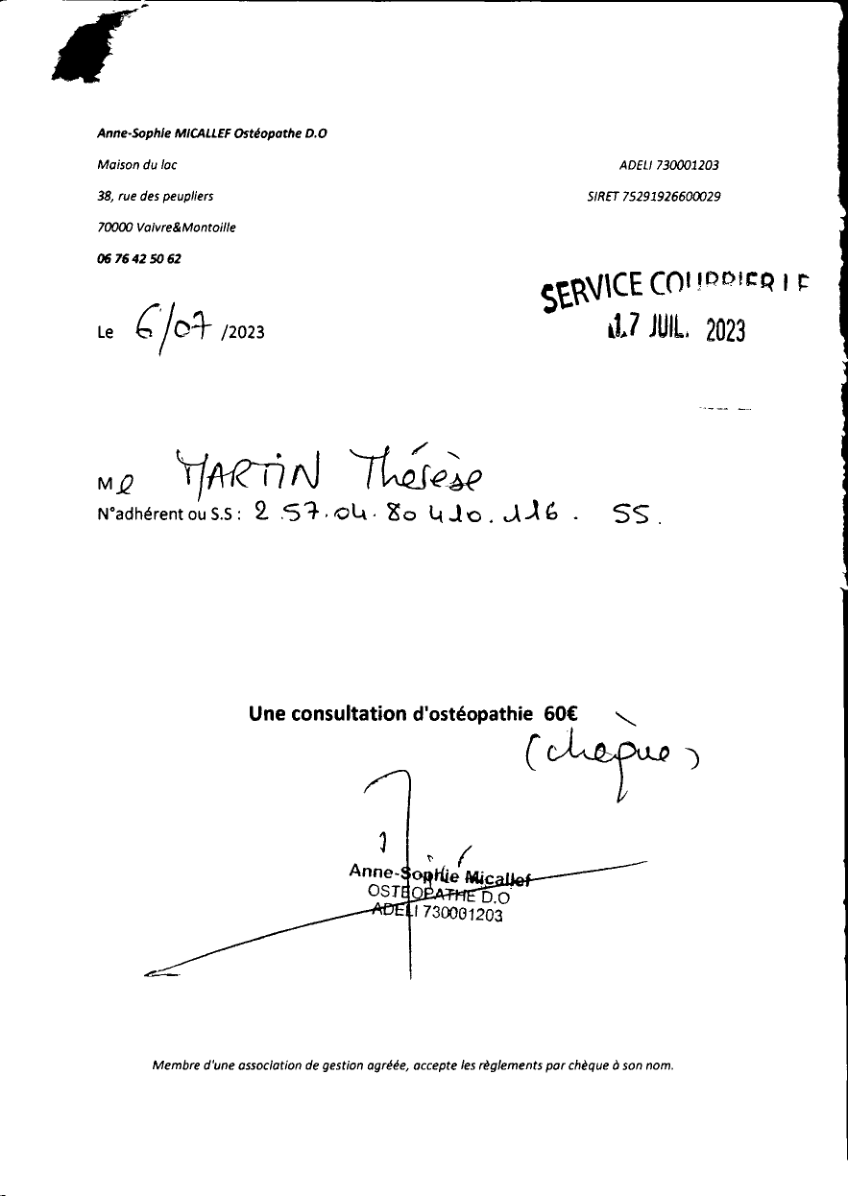 Anne-Sophie MICALLEF Ostéopathe D.O
Maison du lac
ADELI 730001203
38, rue des peupliers
SIRET 75291926600029
70000 Vaivre&Montoille
06 76 42 50 62
SERVICE COURRIER LE
17 JUIL. 2023
Le 6/07 /2023
Me MARTIN Thérèse
N°adhérent ou S.S : 2 57.04.80 410.116. SS.
Une consultation d'ostéopathie 60€
(chèque)
Anne-Sophie Micallef
OSTEOPATHE D.O
ADELI 730001203
Membre d'une association de gestion agréée, accepte les règlements par chèque à son nom.